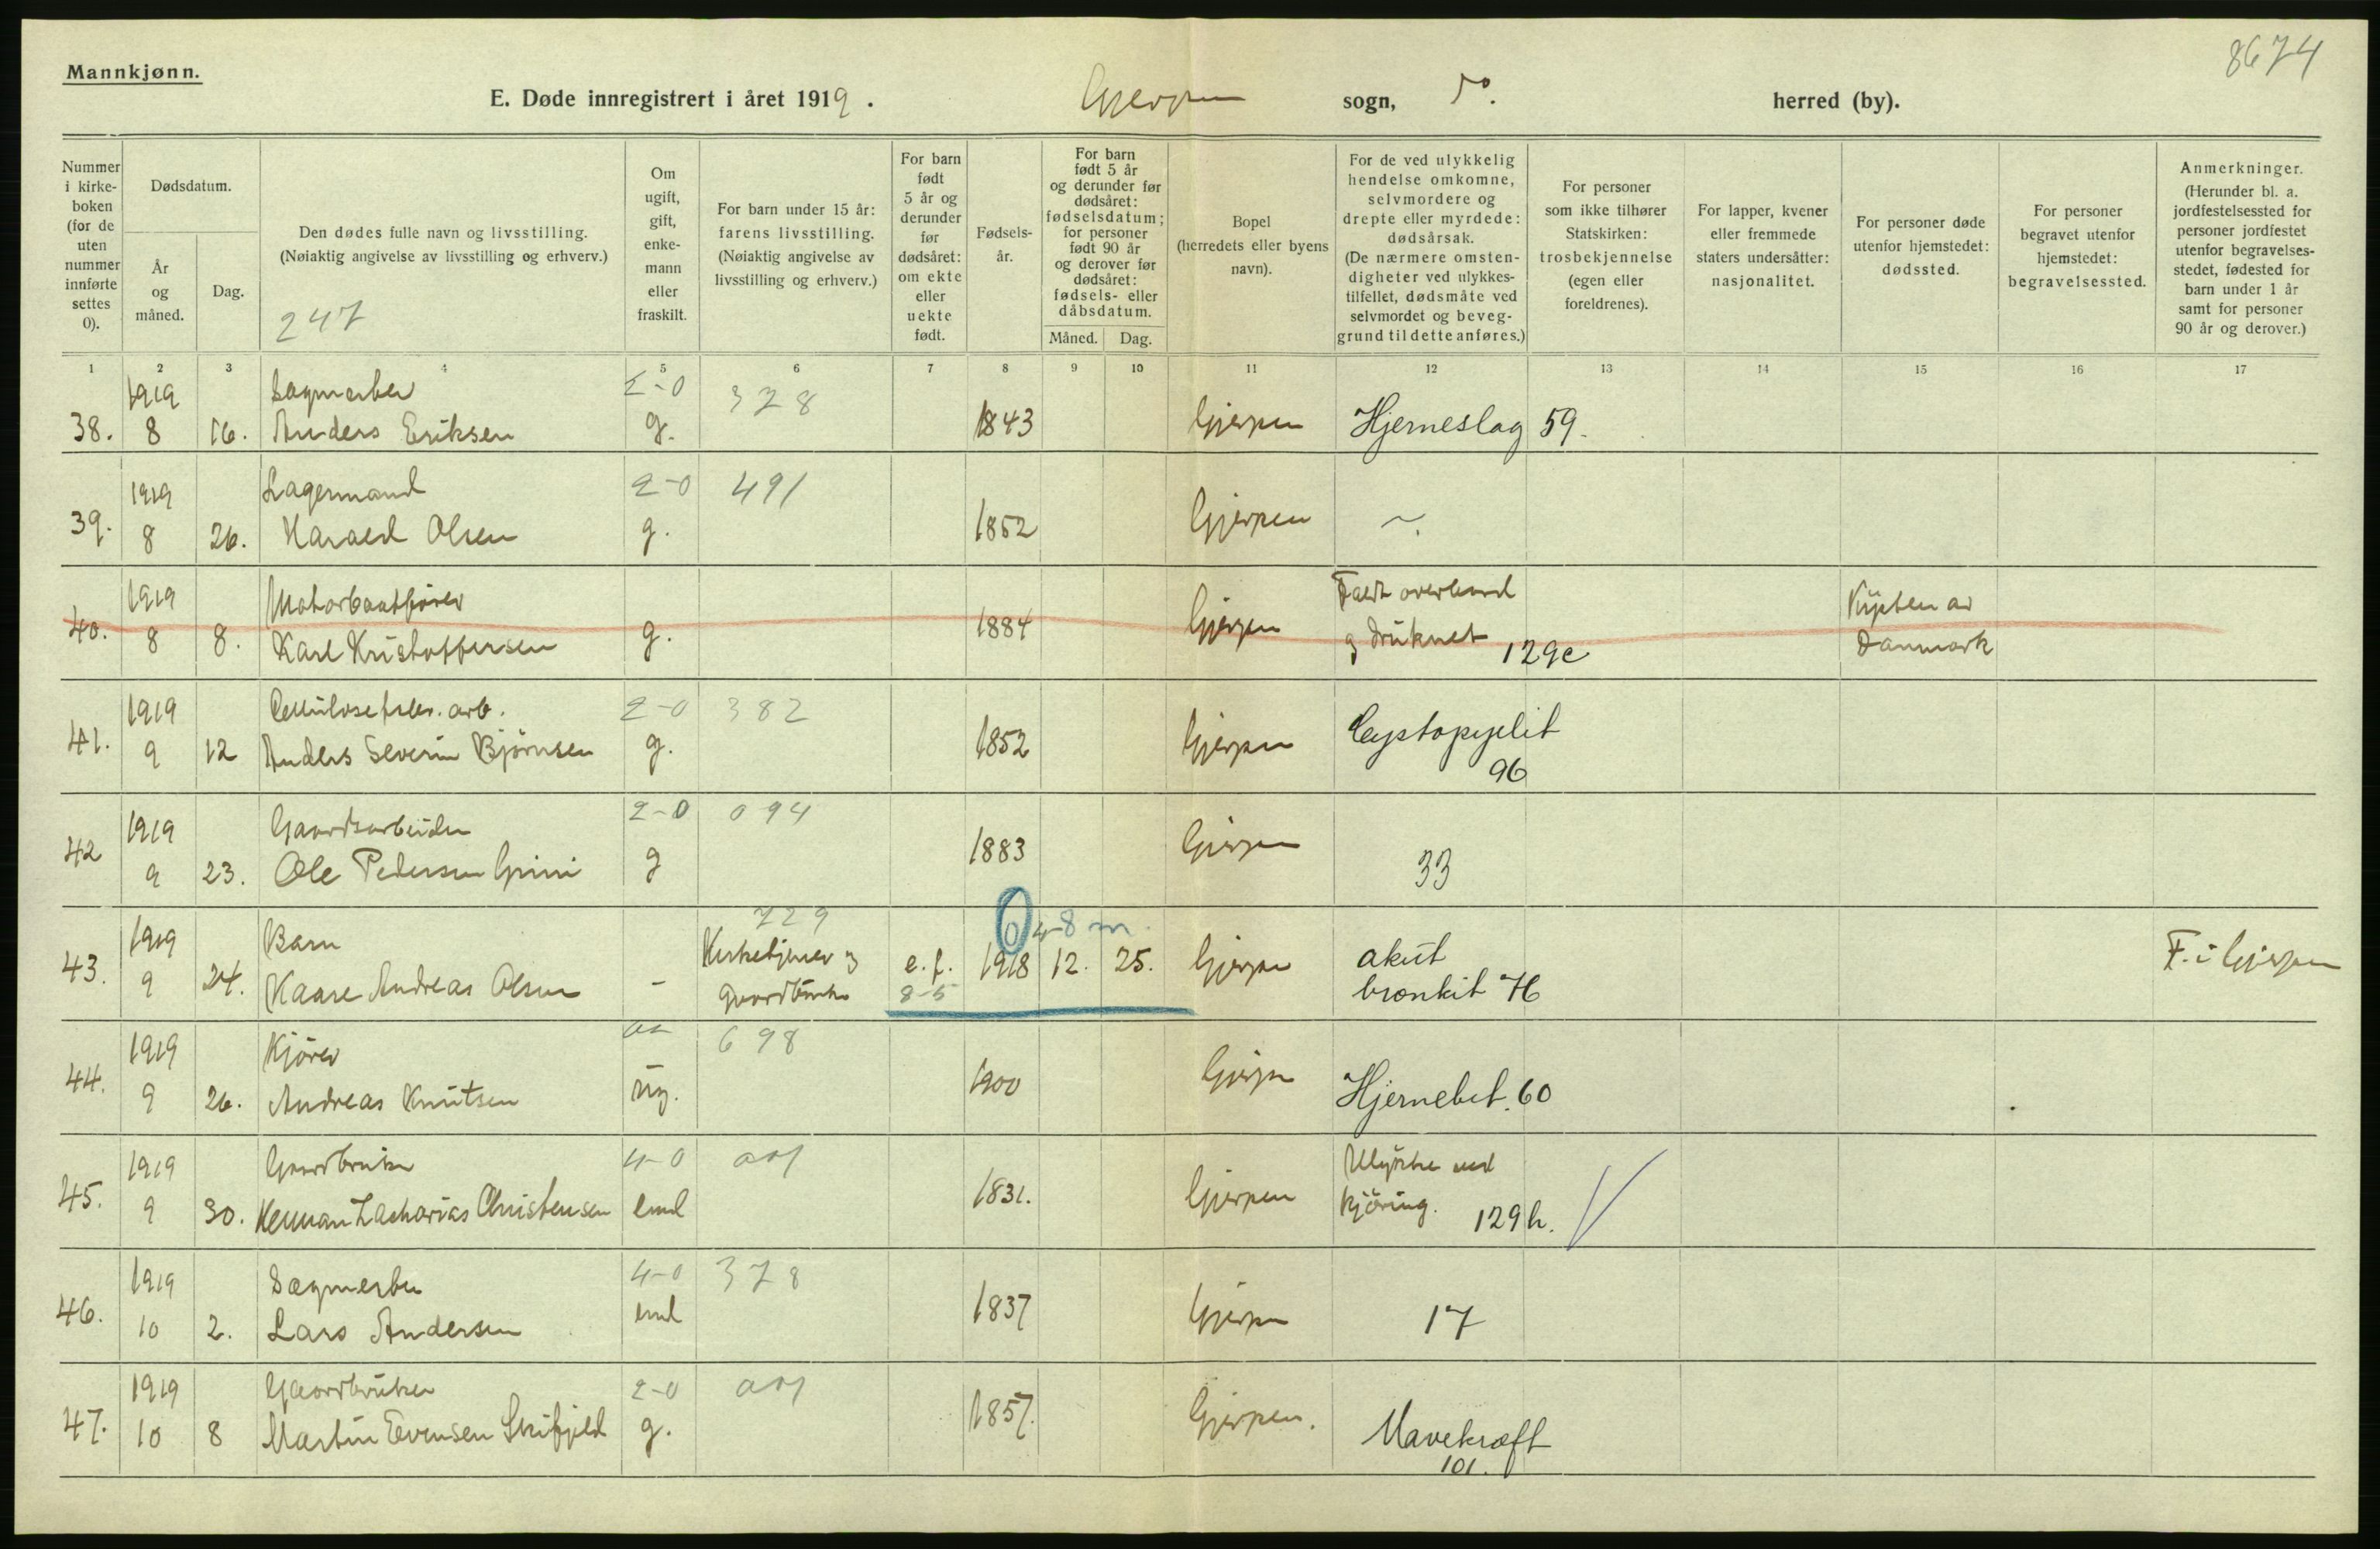 8674
Mannkjønn.
E. Døde innregistrert i året 1919. Gjerpen sogn, do. herred (by).
Nummer i kirkeboken (for de uten nummer innførte settes 0).
Dødsdatum.
År og måned.
Dag.
Den dødes fulle navn og livsstilling.
(Nøiaktig angivelse av livsstilling og erhverv.)
247
Om ugift, gift, enkemann eller fraskilt.
For barn under 15 år: farens livsstilling.
(Nøiaktig angivelse av livsstilling og erhverv.)
For barn født 5 år og derunder før dødsåret: om ekte eller uekte født.
Fødselsår.
For barn født 5 år og derunder før dødsåret: fødselsdatum; for personer født 90 år og derover før dødsåret: fødsels- eller dåbsdatum.
Måned. Dag.
Bopel (herredets eller byens navn).
For de ved ulykkelig hendelse omkomne, selvmordere og drepte eller myrdede: dødsårsak.
(De nærmere omstendigheter ved ulykkestilfellet, dødsmåte ved selvmordet og beveggrund til dette anføres.)
For personer som ikke tilhører Statskirken: trosbekjennelse (egen eller foreldrenes).
For lapper, kvener eller fremmede staters undersåtter: nasjonalitet.
For personer døde utenfor hjemstedet: dødssted.
For personer begravet utenfor hjemstedet: begravelsessted.
Anmerkninger.
(Herunder bl. a. jordfestelsessted for personer jordfestet utenfor begravelsesstedet, fødested for barn under 1 år samt for personer 90 år og derover.)
1 2 3 4 5 6 7 8 9 10 11 12 13 14 15 16 17
1919 Sagmester 2-0 378
38. 8 16. Anders Eriksen g. 1843 Gjerpen Hjerneslag 59.
1919 Lagermand 2-0 491
39. 8 26. Harald Olsen g. 1852 Gjerpen ~.
1919 Motorbaatfører Faldt overbord
40. 8 8. Karl Kristoffersen g. 1884 Gjerpen og druknet 129e Kysten av Danmark
1919 Cellulosefabr. arb. 2-0 382
41. 9 12 Anders Severin Bjørnsen g. 1852 Gjerpen Cystopyelit 96
1919 Gaardsarbeider 2-0 094
42 9 23. Ole Pedersen Grini g 1883 Gjerpen 33
1919 Barn 729 Kirketjener og 0 4-8 m.
43. 9 24. Kaare Andreas Olsen - gaardbruker e.f. 8-5 1918 12. 25. Gjerpen akut bronkit 76 F. i Gjerpen
1919 Kjører 698
44. 9 26. Andreas Knutsen ug. 1900 Gjerpen Hjernebet. 60
1919 Gaardbruker 4-0 Ulykke ved
45. 9 30. Herman Zacharias Christensen eml 1831. Gjerpen kjøring. 129h.
1919 Sagmester 4-0 378
46. 10 2. Lars Andersen eml 1837 Gjerpen 17
1919 Gaardbruker 2-0
47. 10 8 Martin Evensen Skifjeld g. 1857. Gjerpen. Mavekræft 101.